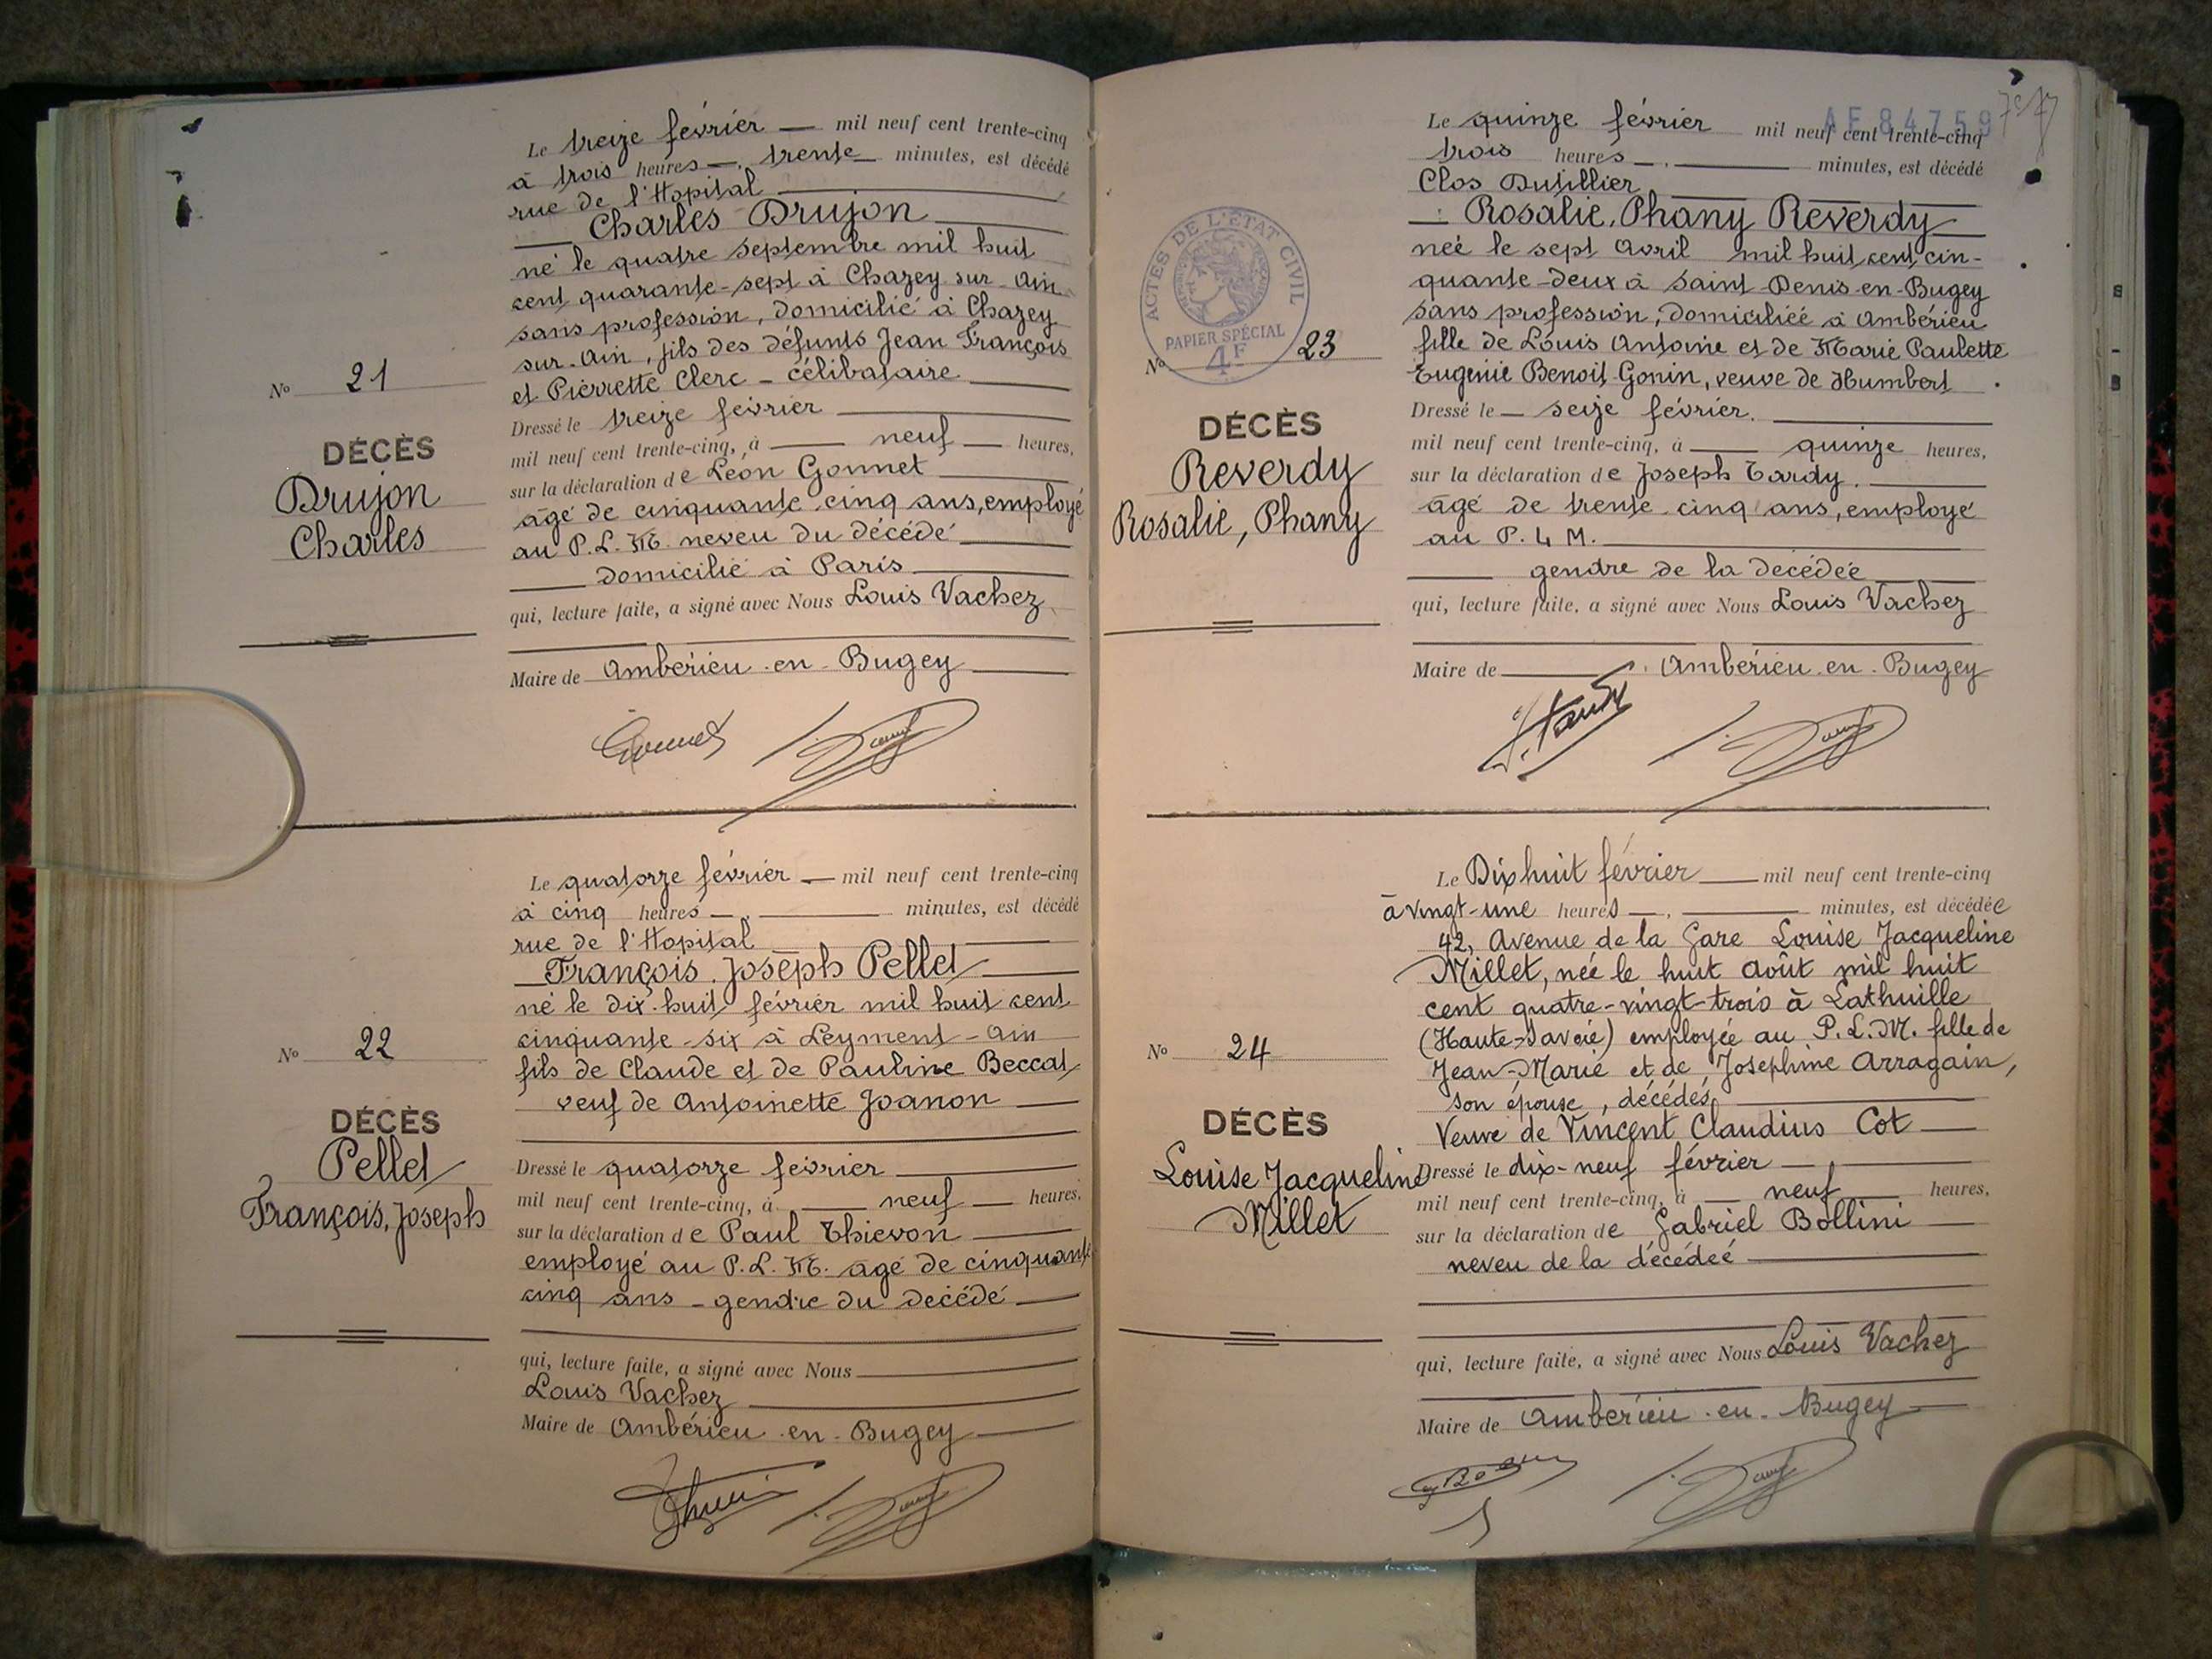 Le treize février — mil neuf cent trente-cinq
à trois heures —, trente minutes, est décédé
rue de l'Hopital
Charles Drujon
né le quatre septembre mil huit
cent quarante-sept à Chazey-sur-Ain
sans profession, domicilié à Chazey
sur-Ain, fils des défunts Jean François
et Pierrette Clerc - célibataire
Dressé le treize février
mil neuf cent trente-cinq, à neuf heures,
sur la déclaration de Léon Gonnet
âgé de cinquante cinq ans, employé
au P.L.M. neveu du décédé
domicilié à Paris
qui, lecture faite, a signé avec Nous Louis Vachez
Maire de Ambérieu-en-Bugey
No 21
DÉCÈS
Drujon
Charles
Gonnet
Le quatorze février — mil neuf cent trente-cinq
à cinq heures —, minutes, est décédé
rue de l'Hopital
François, Joseph Pellet
né le dix-huit février mil huit cent
cinquante-six à Leyment-Ain
fils de Claude et de Pauline Beccat
veuf de Antoinette Joanon
Dressé le quatorze février
mil neuf cent trente-cinq, à neuf heures,
sur la déclaration de Paul Thievon
employé au P.L.M. agé de cinquante
cinq ans - gendre du decédé
qui, lecture faite, a signé avec Nous
Louis Vachez
Maire de Ambérieu-en-Bugey
No 22
DÉCÈS
Pellet
François, Joseph
AE84759
Le quinze février mil neuf cent trente-cinq
trois heures —, minutes, est décédé
Clos Dutillier
Rosalie, Phany Reverdy
née le sept Avril mil huit cent cin-
quante-deux à Saint-Denis-en-Bugey
sans profession, domiciliée à Ambérieu
fille de Louis Antoine et de Marie Paulette
Eugénie Benoit-Gonin, veuve de Humbert
Dressé le — seize février.
mil neuf cent trente-cinq, à quinze heures,
sur la déclaration de Joseph Tardy.
agé de trente cinq ans, employé
au P.L.M.
gendre de la décédée
qui, lecture faite, a signé avec Nous Louis Vachez
Maire de Ambérieu-en-Bugey
ACTES DE L'ÉTAT CIVIL
PAPIER SPÉCIAL
4F
No 23
DÉCÈS
Reverdy
Rosalie, Phany
J. Tardy
Le Dix huit février — mil neuf cent trente-cinq
à vingt-une heures —, minutes, est décédée
42, Avenue de la Gare Louise Jacqueline
Millet, née le huit Août mil huit
cent quatre-vingt-trois à Lathuille
(Haute-Savoie) employée au P.L.M. fille de
Jean-Marie et de Josephine Arragain,
son épouse, décédés
Veuve de Vincent Claudius Cot
Dressé le dix-neuf février
mil neuf cent trente-cinq, à neuf heures,
sur la déclaration de Gabriel Bollini
neveu de la décédée
qui, lecture faite, a signé avec Nous Louis Vachez
Maire de Ambérieu-en-Bugey
No 24
DÉCÈS
Louise Jacqueline
Millet